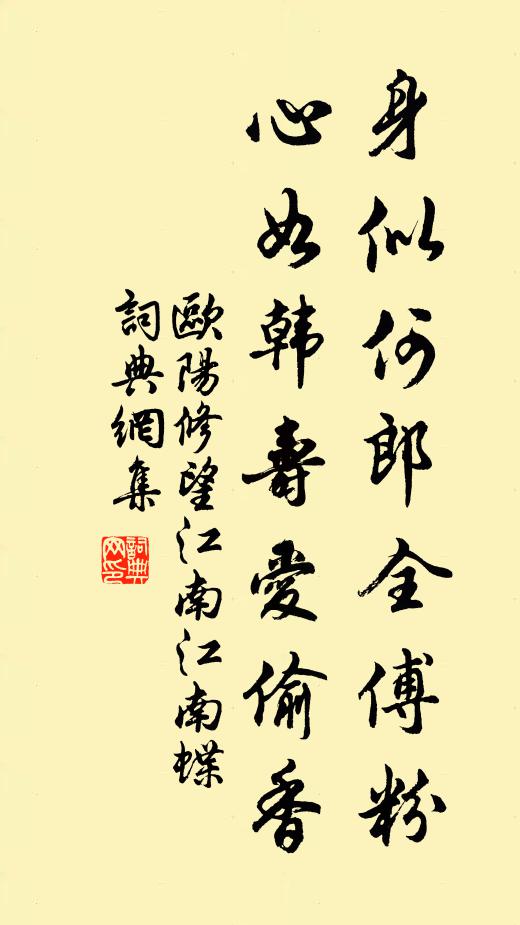 身似何郎全傅粉
心如韩壽愛偷香
歐陽修望江南江南蝶
詞典網集
詞典网印